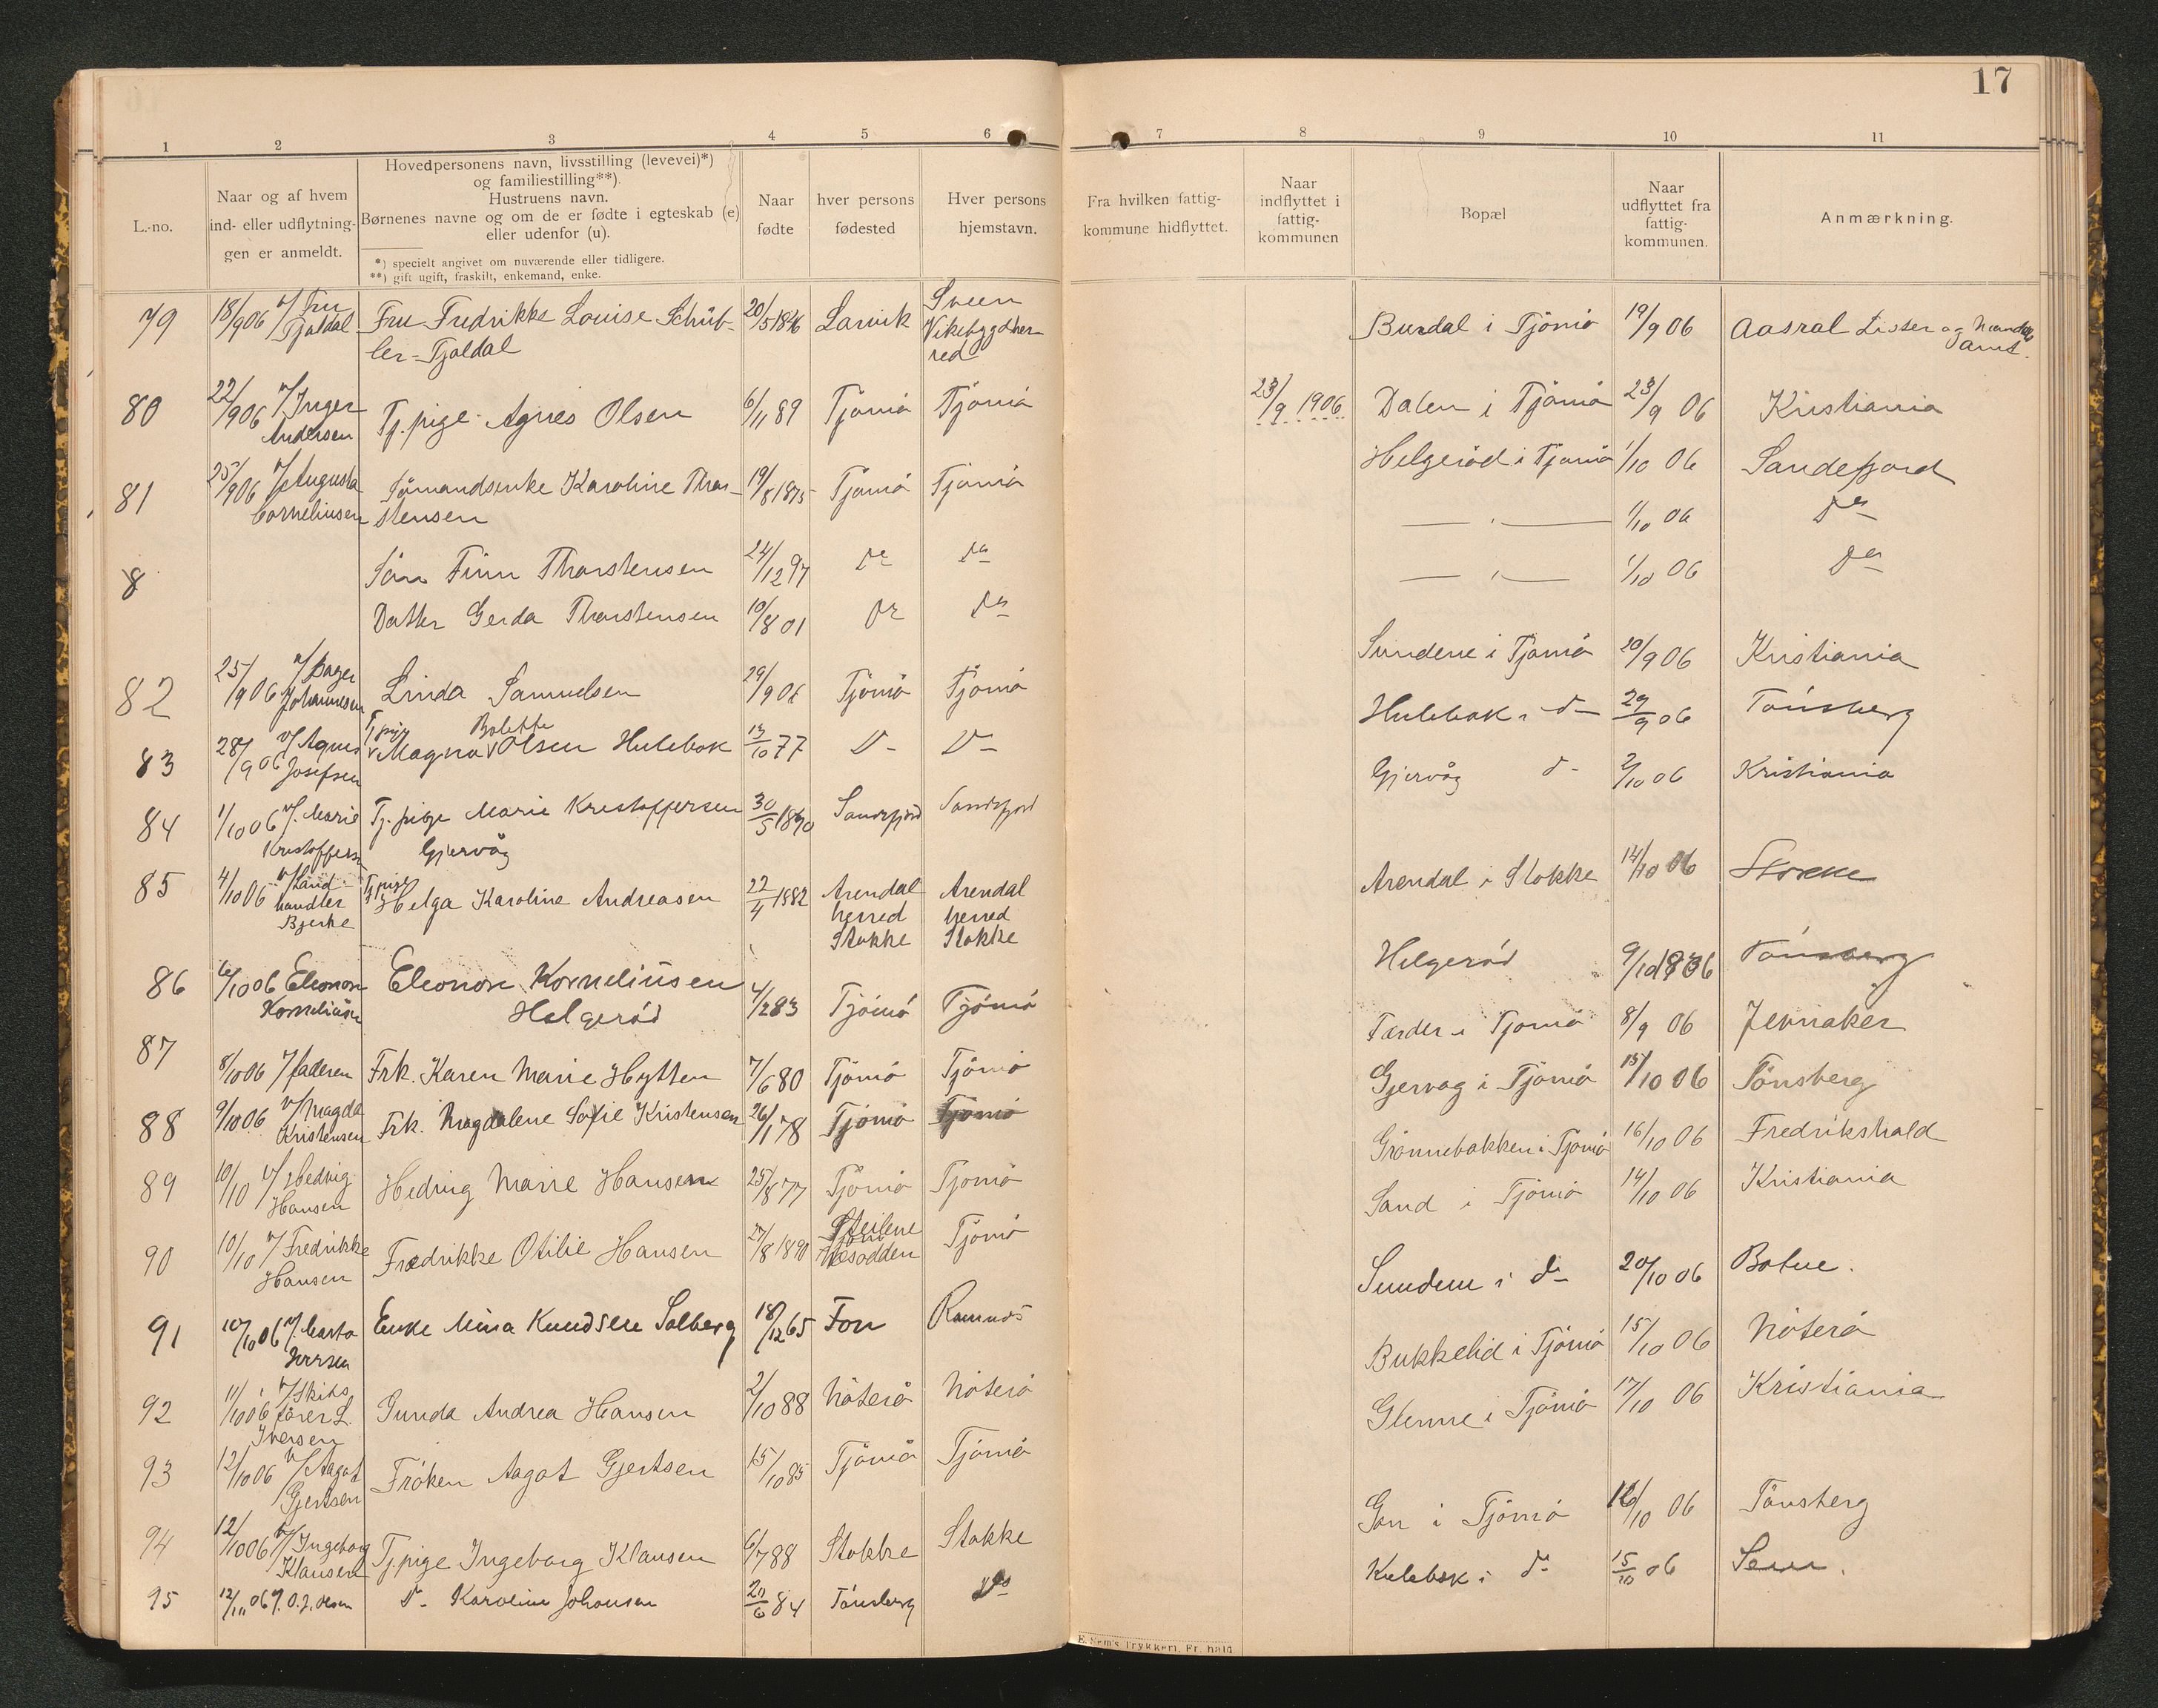 17
1 2 3 4 5 6 7 8 9 10 11
L.-no.
Naar og af hvem
ind- eller udflytnin-
gen er anmeldt.
Hovedpersonens navn, livsstilling (levevei)*)
og familiestilling**).
Hustruens navn.
Børnenes navne og om de er fødte i egteskab (e)
eller udenfor (u).
*) specielt angivet om nuværende eller tidligere.
**) gift ugift, fraskilt, enkemand, enke.
Naar
fødte
hver persons
fødested
Hver persons
hjemstavn.
Fra hvilken fattig-
kommune hidflyttet.
Naar
indflyttet i
fattig-
kommunen
Bopæl
Naar
udflyttet fra
fattig-
kommunen.
Anmærkning.
79 18/9 06 v/ Fru Fru Fredrikke Louise Schüb- 20/5 1846 Larvik Sveen
Tjaldal ler-Tjaldal Vikebygd her-
red
Burdal i Tjömö 19/9 06 Aasral Lister og Mandals
Amt.
80 22/9 06 v/ Inger Tj. pige Agnes Olsen 6/11 89 Tjömö Tjömö
Andersen
23/9 1906 Dalen i Tjömö 23/9 06 Kristiania
81 25/9 06 v/ Augusta Sömandsenke Karoline Thor- 19/8 1875 Tjömö Tjömö
Corneliusen stensen
Helgeröd i Tjömö 1/10 06 Sandefjord
1/10 06 Do
8 Sön Finn Thorstensen 24/12 97 Do Do
1/10 06 Do
Datter Gerda Thorstensen 10/8 01 Do Do
82 25/9 06 v/ Linda Samuelsen 29/9 06 Tjömö Tjömö
Johannesen
Sundene i Tjömö 20/9 06 Kristiania
83 28/9 06 v/ Agnes Tj. pige Magna Bolette Olsen Hulebak 13/10 77 D- D-
Josefsen
Hulebak i d- 29/9 06 Tönsberg
84 1/10 06 v/ Marie Tj. pige Marie Kristoffersen 30/5 1890 Sandefjord Sandefjord
Kristoffersen Gjervåg
Gjervåg d- 2/10 06 Kristiania
85 4/10 06 v/ Land- Tj. pige Helga Karoline Andreasen 22/4 1882 Arendal Arendal
handler herred herred
Bjerke Stokke Stokke
Arendal i Stokke 14/10 06 Stokke
86 6/10 06 Eleonore Eleonore Korneliusen 4/2 83 Tjömö Tjömö
Korneliusen Helgeröd
Helgeröd 9/10 1906 Tönsberg
87 8/10 06 v/ faderen Frk. Karen Marie Hytten 7/6 80 Tjömö Tjömö
Færder i Tjömö 8/9 06 Jevnaker
88 9/10 06 v/ Magda Frk. Magdalene Sofie Kristensen 26/1 78 Tjömö Tjömö
Kristensen
Gjervåg i Tjömö 15/10 06 Tönsberg
89 10/10 v/ Hedvig Hedvig Marie Hansen 25/8 77 Tjömö Tjömö
Hansen
Grönnebakken i Tjömö 16/10 06 Fredrikshald
90 10/10 v/ Fredrikke Fredrikke Otilie Hansen 27/8 1890 Steilene Tjömö
Hansen Nesodden
Sand i Tjömö 14/10 06 Kristiania
91 10/10 06 v/ Enke Mina Knudsen Solberg 18/12 65 Fon Ramnes
Sundene i d- 20/10 06 Botne.
92 11/10 06 v/ Skibs Gunda Andrea Hansen 2/10 88 Nöterö Nöterö
förer L.
Iversen
Bukkelid i Tjömö 15/10 06 Nöterö
93 12/10 06 v/ Aagot Fröken Aagot Gjertsen 15/10 85 Tjömö Tjömö
Gjertsen
Glenne i Tjömö 17/10 06 Kristiania
94 12/10 06 v/ Ingeborg Tj. pige Ingeborg Klausen 6/7 88 Stokke Stokke
Klausen
Gon i Tjömö 16/10 06 Tönsberg
95 12/10 06 v. O. J. Olsen D- Karoline Johansen 20/6 84 Tönsberg Do
Hulebak i d- 15/10 06 Sem.
E. Sem's Trykkeri, Fr. hald